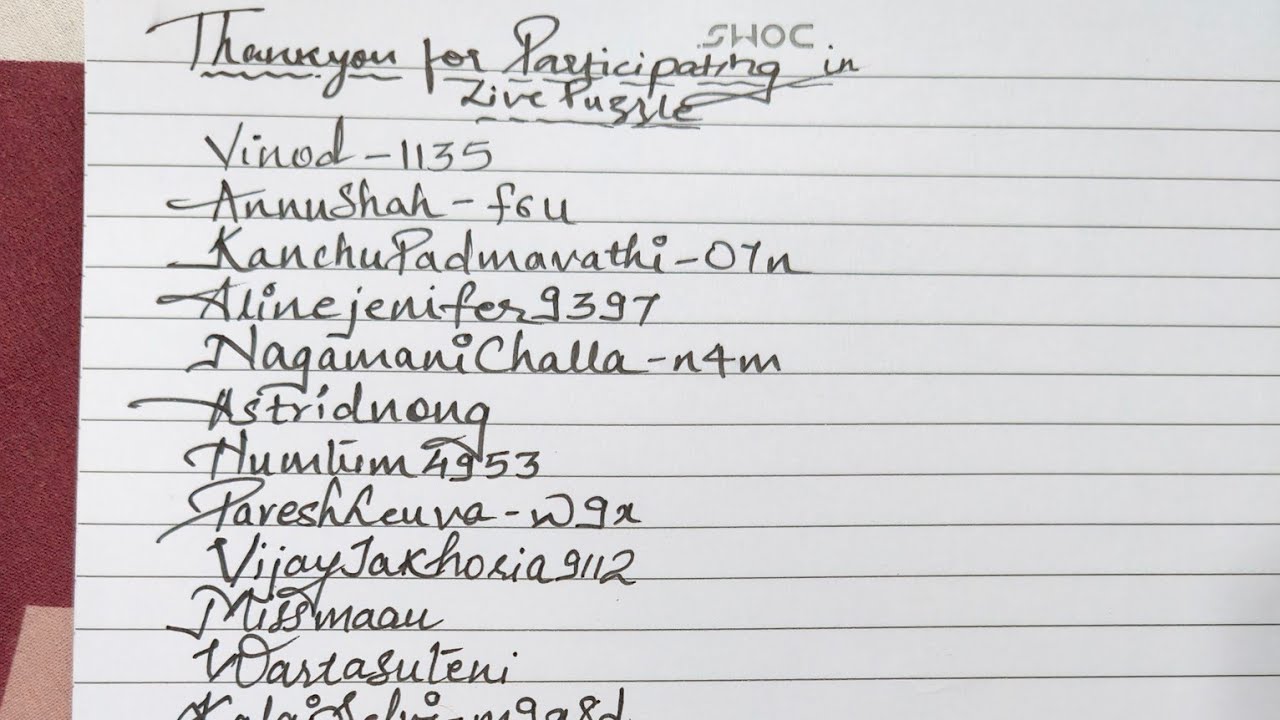 SWOC
Thankyou for Participating in
Live Puzzle
Vinod-1135
AnnuShah-f6u
KanchuPadmavathi-07n
Alinejenifer9397
NagamaniChalla-n4m
Astridnong
Humtum4953
PareshLeuva-w9x
VijayJakhosia9112
Missmaau
Wartasuteni
KalaiSelvi-m9a8d